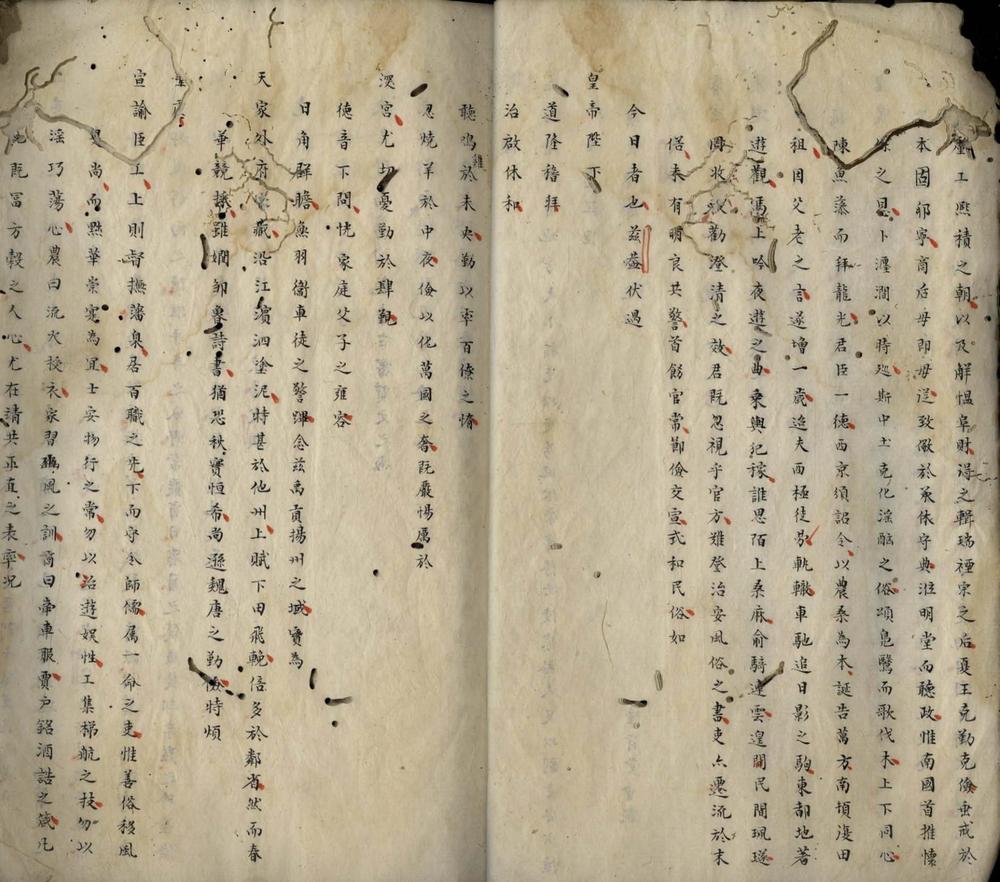 釐工熙積之朝以及解慍阜財濬之輯瑞禋宗之后夏王克勤克儉垂戒於
本固邦寧商后毋即毋逞致儆於承休守典涖明堂而聽政惟南國首推懷
之恩卜瀍澗以時廵斯中土克化淫酗之俗頌鳧鷖而歌伐木上下同心
陳魚藻而拜龍光君臣一德西京須詔令以農桑為本誕告萬方南頓復田
租因父老之言遂增一歲迨夫西極徒勞軌轍車馳追日影之駒東都地著
遊觀馬上吟夜遊之曲乘輿犯稼誰思陌上桑麻俞騎連雲遑問民間珮璲
周收效勸澄清之效君既忽視乎官方雖登治安風俗之書吏亦遷流於末
僭未有明良共警首飭官常節儉交宣式和民俗如
今日者也茲蓋伏遇
皇帝陛下
道隆稽拜
治啟休和
聽鳴雞於未央勤以率百僚之惰
忍燒羊於中夜儉以化萬國之奢既嚴惕厲於
深宮尤切憂勤於肆覲
德音下問恍家庭父子之雍容
日角群瞻煥羽衞車徒之警蹕念茲禹貢揚州之域實為
天家外府之藏沿江濱泗塗泥時甚於他州上賦下田飛輓倍多於鄰省然而春
華競掞雖嫻鄒魯詩書猶恐秩實恒希尚遜魏唐之勤儉特煩
宣諭臣工上則督撫藩臬居百職之先下而守令師儒属一命之吏惟善俗移風
尚而黜華崇實為宜士安物行之常勿以冶遊娛性工集梯航之技勿以
淫巧蕩心農曰流火授衣家習豳風之訓商曰牽車服賈户銘酒誥之箴凡
既富方穀之人心尤在靖共正直之表率况